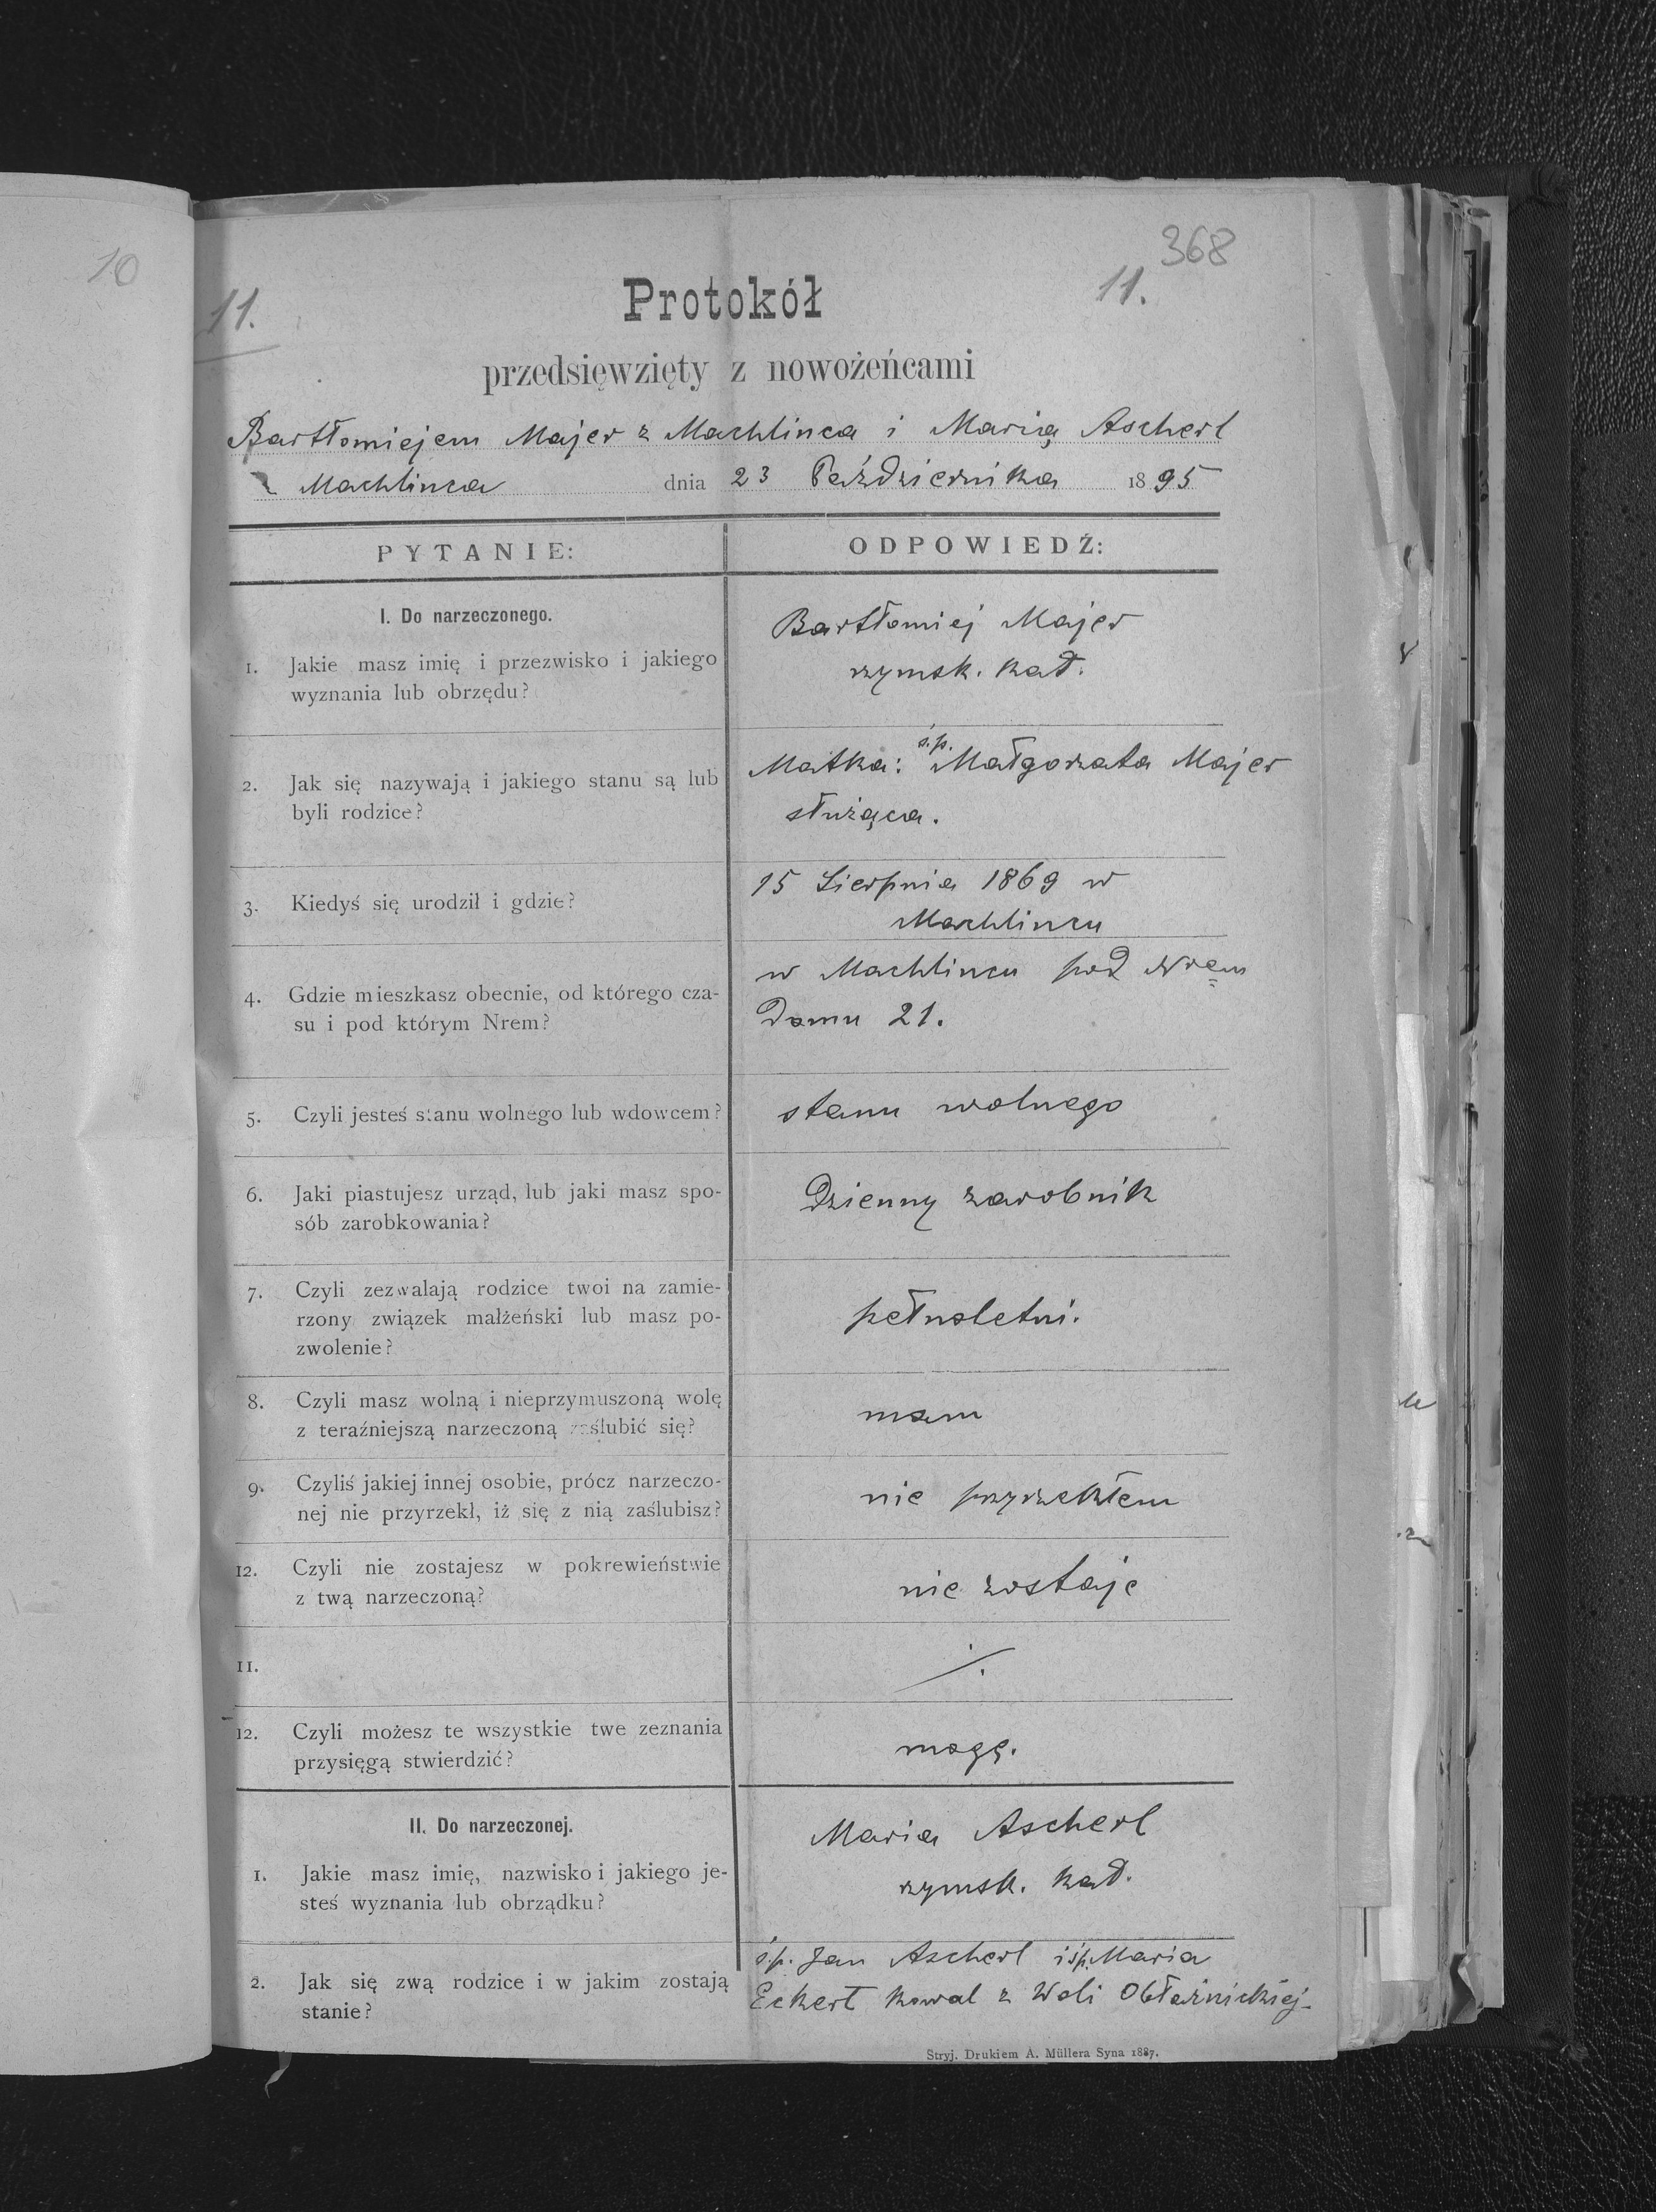 10
368
11.
11.
Protokół
przedsięwzięty z nowożeńcami
Bartłomiejem Majer z Machlinca i Marią Ascherl
z Machlinca dnia 23 Października 1895
PYTANIE:
ODPOWIEDŹ:
I. Do narzeczonego.
1. Jakie masz imię i przezwisko i jakiego
wyznania lub obrzędu?
Bartłomiej Majer
rzymsk. kat.
2. Jak się nazywają i jakiego stanu są lub
byli rodzice?
Matka: ś.p. Małgorzata Majer
służąca.
3. Kiedyś się urodził i gdzie?
15 Sierpnia 1869 w
Machlincu
4. Gdzie mieszkasz obecnie, od którego cza-
su i pod którym Nrem?
w Machlincu pod Nrem
Domu 21.
5. Czyli jesteś stanu wolnego lub wdowcem?
stanu wolnego
6. Jaki piastujesz urząd, lub jaki masz spo-
sób zarobkowania?
Dzienny zarobnik
7. Czyli zezwalają rodzice twoi na zamie-
rzony związek małżeński lub masz po-
zwolenie?
pełnoletni.
8. Czyli masz wolną i nieprzymuszoną wolę
z teraźniejszą narzeczoną zaślubić się?
mam
9. Czyliś jakiej innej osobie, prócz narzeczo-
nej nie przyrzekł, iż się z nią zaślubisz?
nie przyrzekłem
12. Czyli nie zostajesz w pokrewieństwie
z twą narzeczoną?
nie zostaje
11.
./.
12. Czyli możesz te wszystkie twe zeznania
przysięgą stwierdzić?
mogę.
II. Do narzeczonej.
1. Jakie masz imię, nazwisko i jakiego je-
steś wyznania lub obrządku?
Maria Ascherl
rzymsk. kat.
2. Jak się zwą rodzice i w jakim zostają
stanie?
ś.p. Jan Ascherl i śp. Maria
Eckert kowal z Woli Obłaźnickiej
Stryj. Drukiem A. Müllera Syna 1887.